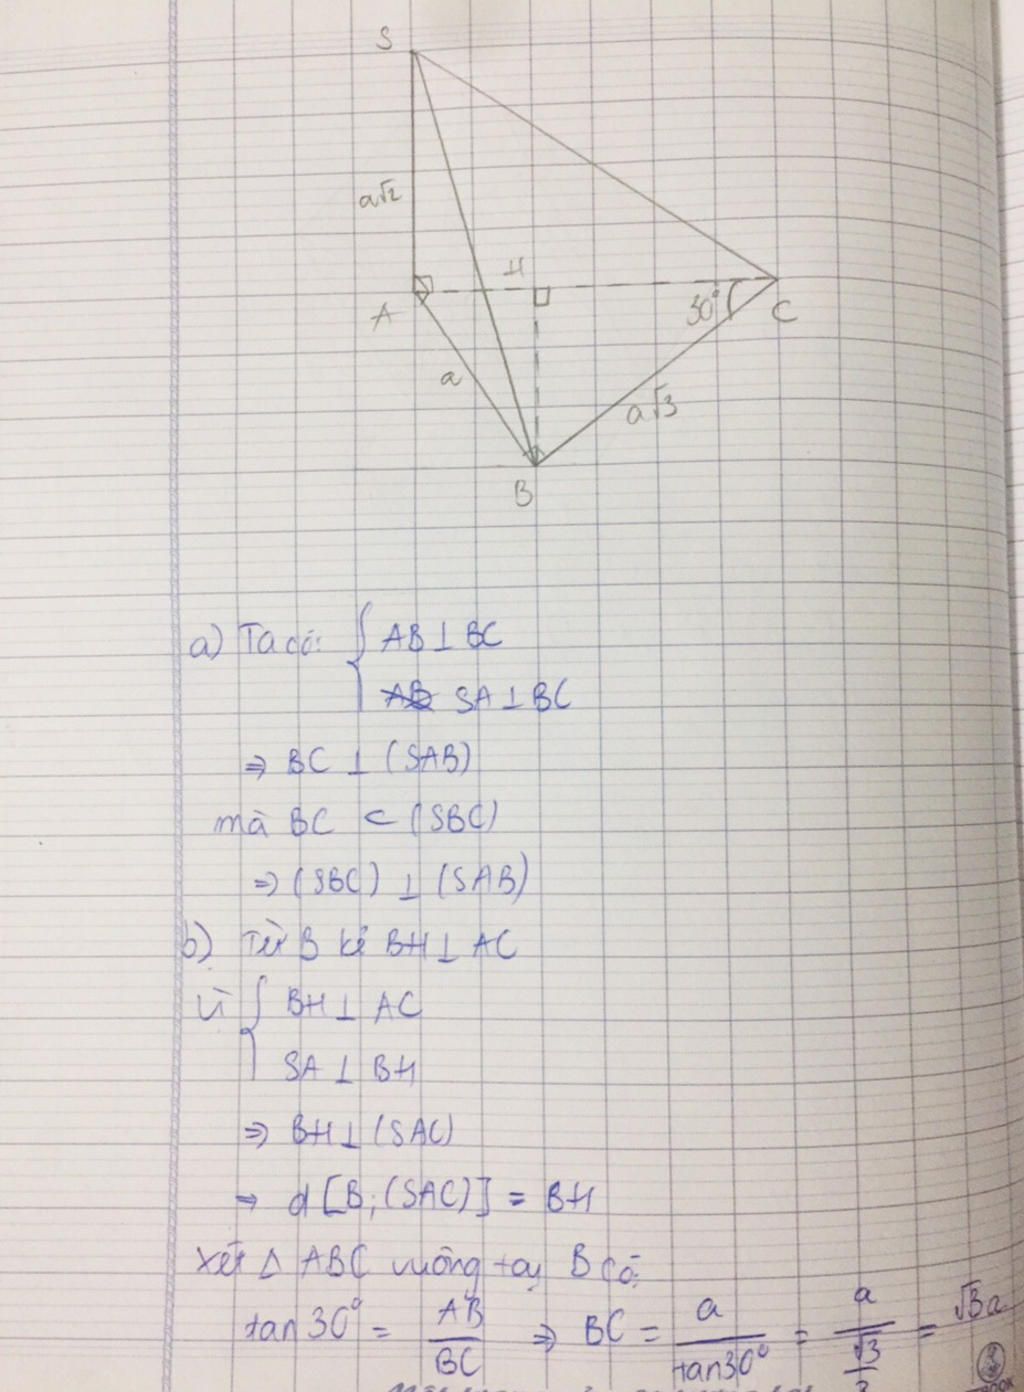 S
a√2
H
A
30°
C
a
a√3
B
a) Ta có: { AB ⊥ BC
SA ⊥ BC
⇒ BC ⊥ (SAB)
mà BC ⊂ (SBC)
⇒ (SBC) ⊥ (SAB)
b) Từ B kẻ BH ⊥ AC
Vì { BH ⊥ AC
SA ⊥ BH
⇒ BH ⊥ (SAC)
⇒ d[B;(SAC)] = BH
Xét Δ ABC vuông tại B có:
tan 30° = AB/BC ⇒ BC = a/tan30° = a/(√3/3) = √3a